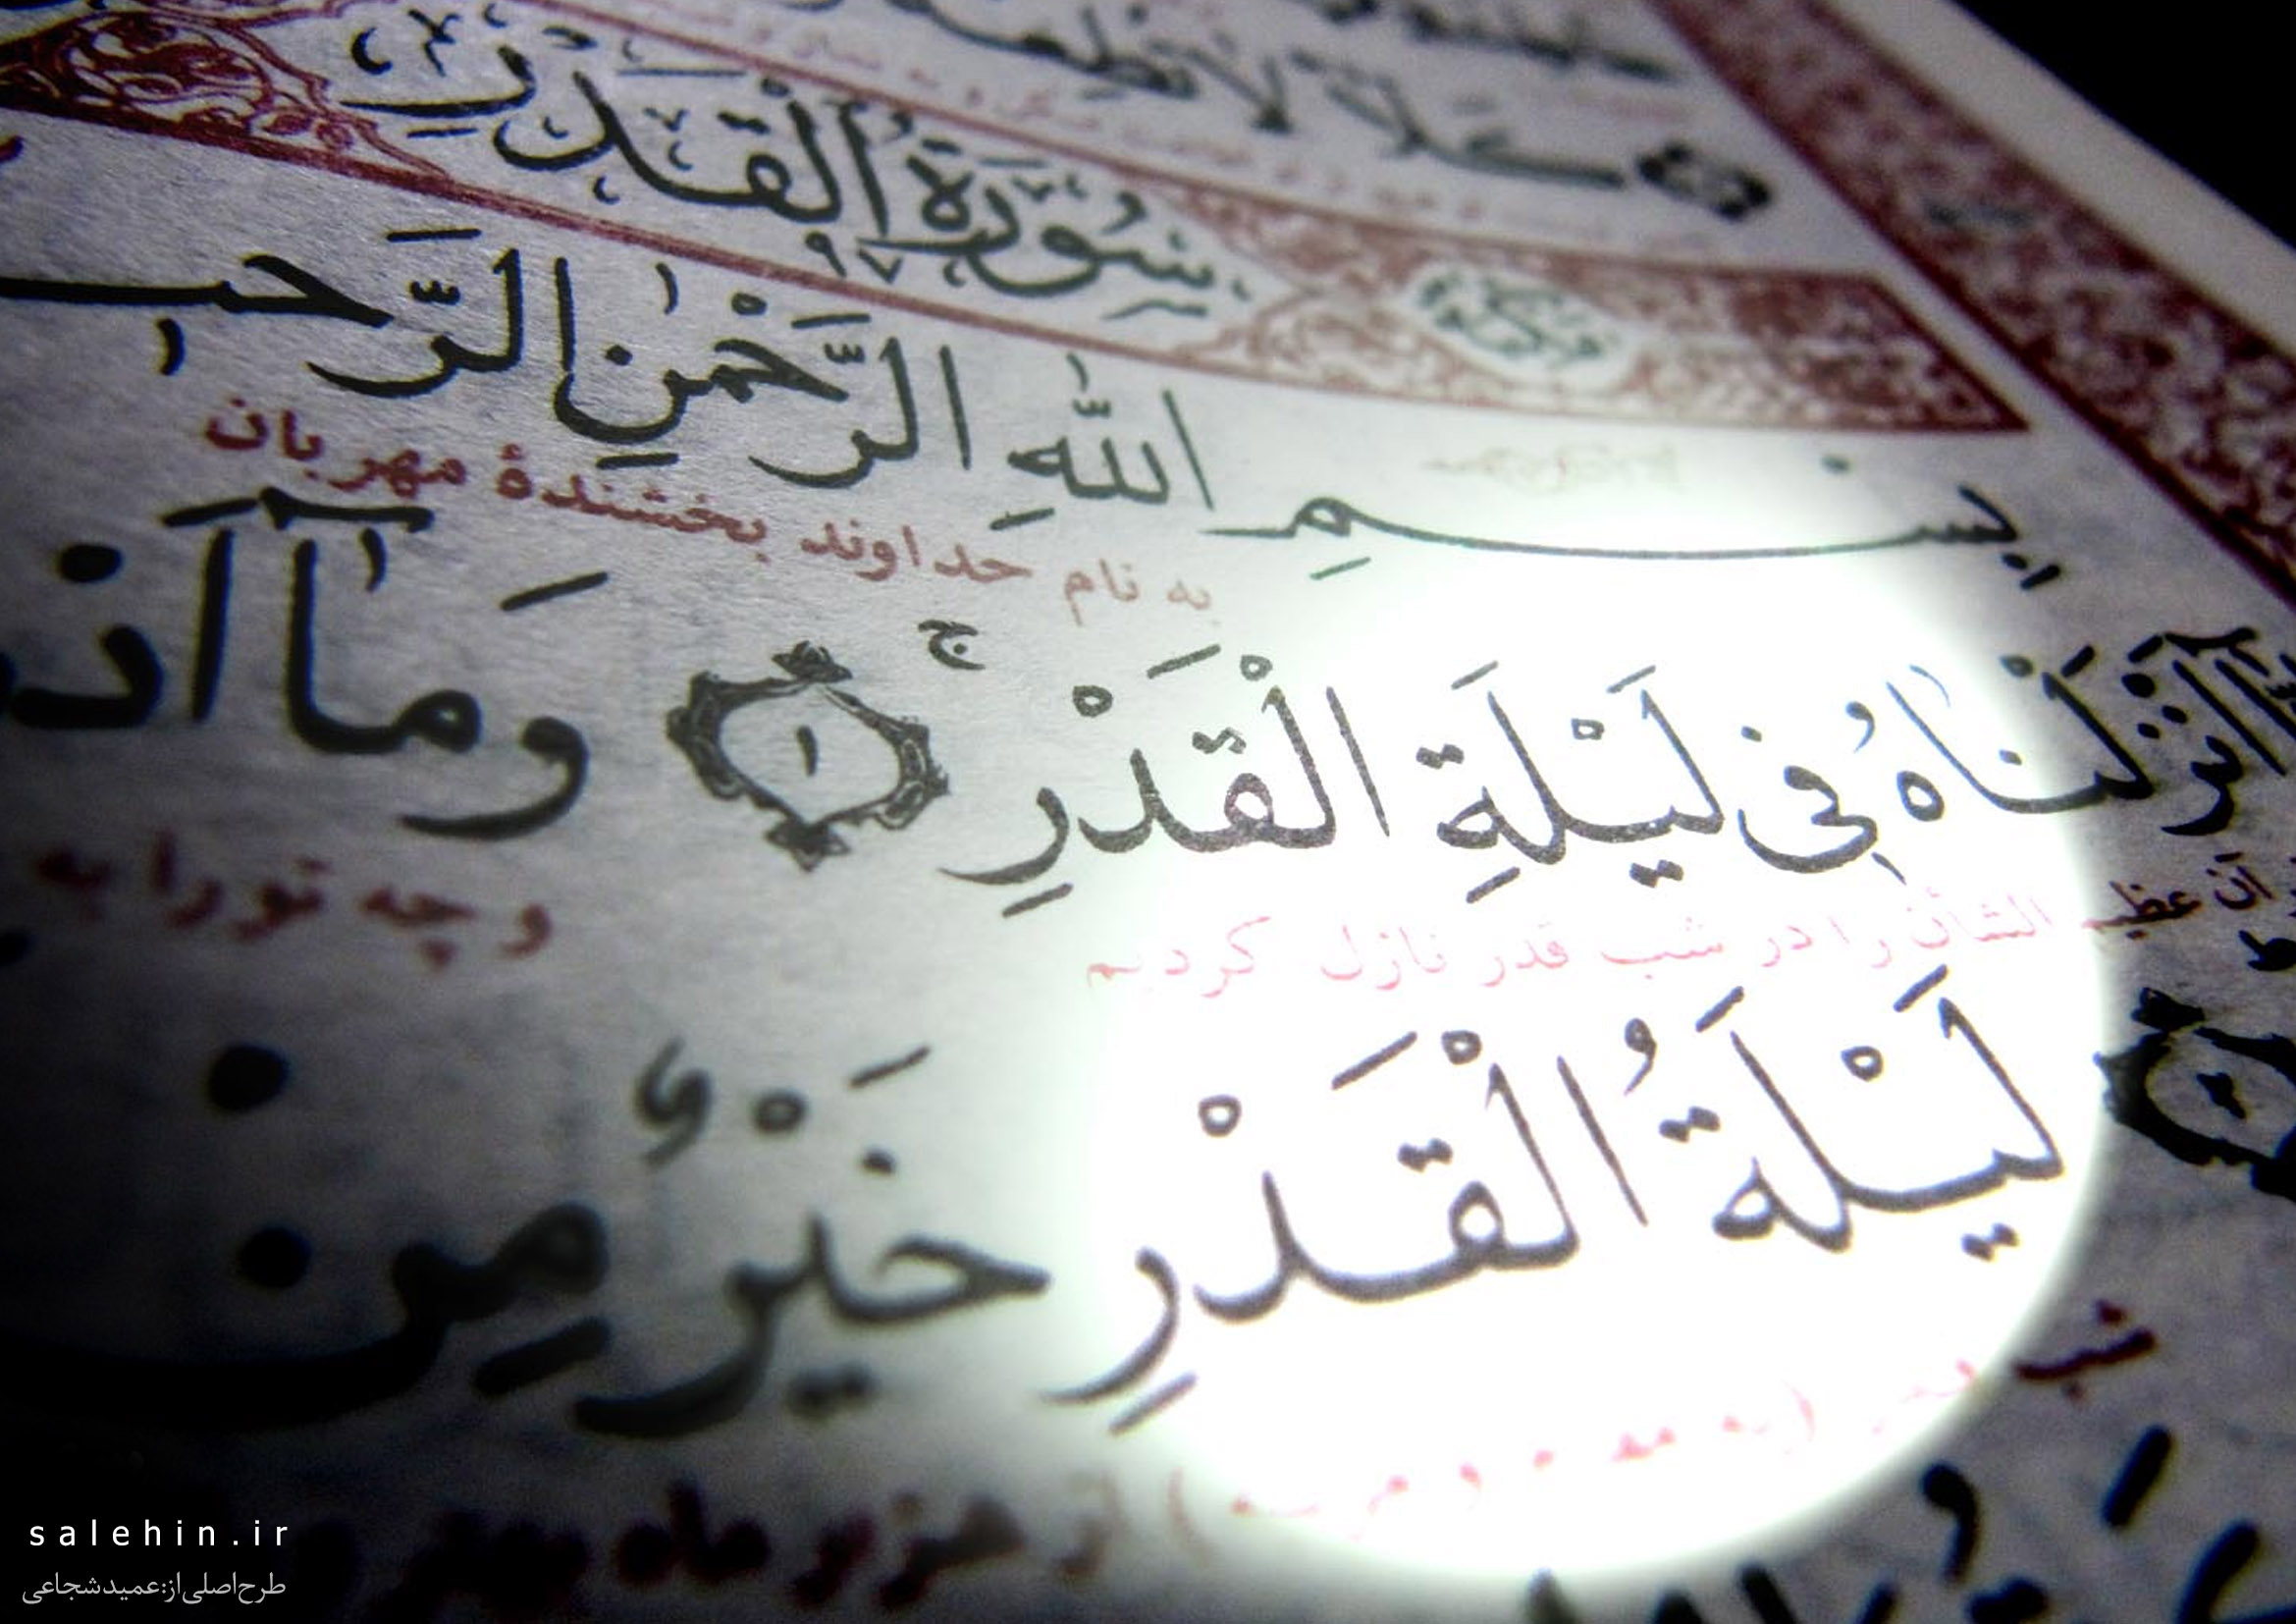 كَلَّا لَا تُطِعْهُ
سُورَةُ الْقَدْرِ
٩٧
بِسْمِ اللّٰهِ الرَّحْمٰنِ الرَّحـ
به نام خداوند بخشندهٔ مهربان
اَنْزَلْنٰاهُ فِي لَيْلَةِ الْقَدْرِ ج ١ وَمٰآ اَد
آن عظیم الشأن را در شب قدر نازل کردیم و چه تو را به
٢ لَيْلَةُ الْقَدْرِ خَيْرٌ مِنْ
شب قدر (به مقام و مرتبه) از هزار ماه بهتر
salehin.ir
طرح اصلی از: عمید شجاعی